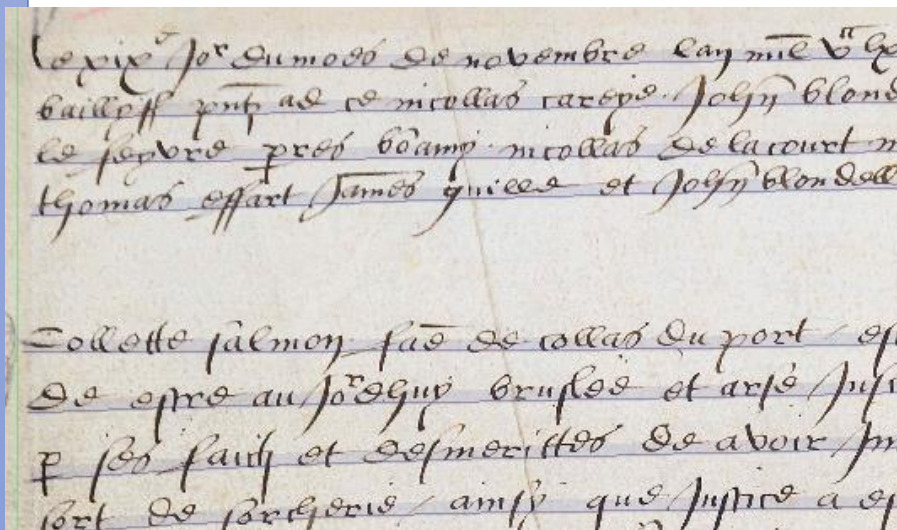 Le xixe Jor du moes de novembre lan mil vc lx
baillyff pnts ad ce nicollas careye Johan blond
le feyvre pres bōamy nicollas de la court
thomas effart James quille et Johan blondell
Collette salmon fāe de collas du port est
de estre au Jordhuy bruslee et arse Jus
p ses faicts et desmerittes de avoir
sort de sorcherie ainsy que Justice a